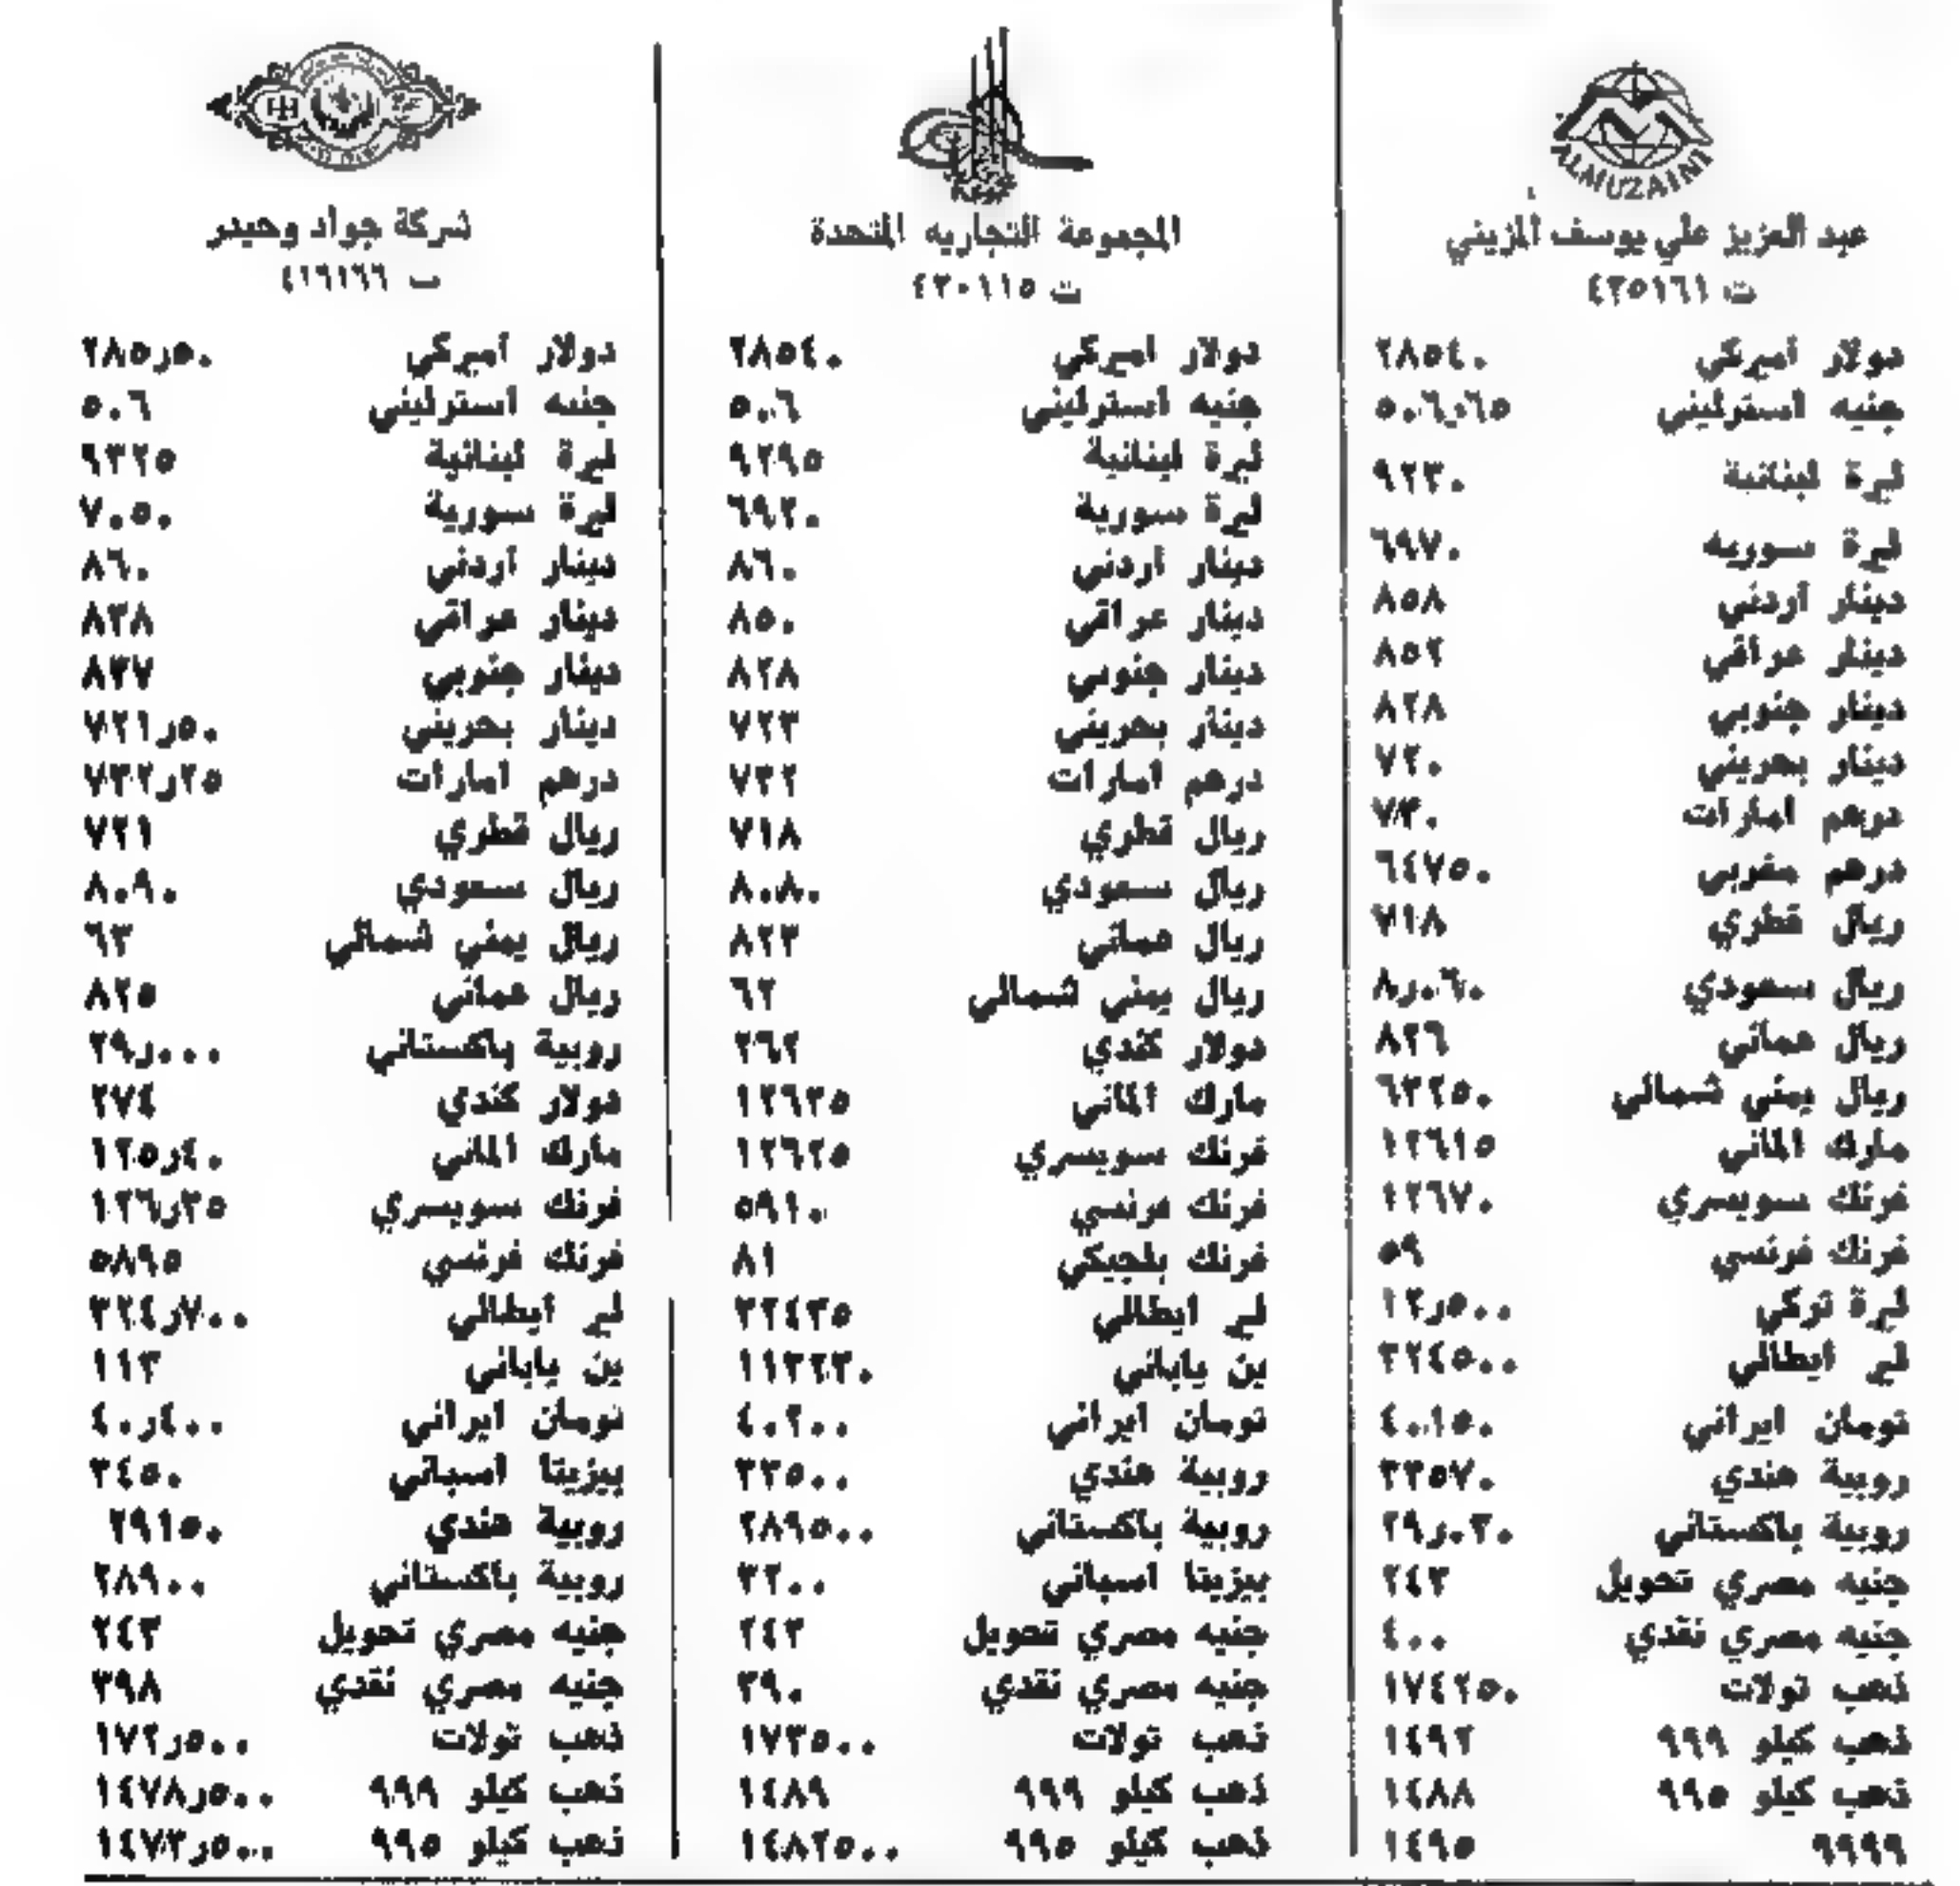 ALMUZAINI
عبد العزيز علي يوسف المزيني
ت ٤٣٥١٦١
دولار أميركي ٢٨٥٤٠
جنيه استرليني ٥٠٦٫٠٦٥
ليرة لبنانية ٩٢٣٠
ليرة سورية ٦٩٧٠
دينار أردني ٨٥٨
دينار عراقي ٨٥٢
دينار جنوبي ٨٢٨
دينار بحريني ٧٢٠
درهم امارات ٧٣٠
درهم مغربي ٦٤٧٥٠
ريال قطري ٧١٨
ريال سعودي ٨٫٠٦٠
ريال عماني ٨٢٦
ريال يمني شمالي ٦٣٢٥٠
مارك الماني ١٢٦١٥
فرنك سويسري ١٢٦٧٠
فرنك فرنسي ٥٩
ليرة تركي ١٢٫٥٠٠
لير ايطالي ٣٢٤٥٠٠
تومان ايراني ٤٠١٥٠
روبية هندي ٣٣٥٧٠
روبية باكستاني ٢٩٫٠٣٠
جنيه مصري تحويل ٢٤٣
جنيه مصري نقدي ٤٠٠
ذهب تولات ١٧٤٢٥٠
ذهب كيلو ٩٩٩ ١٤٩٢
ذهب كيلو ٩٩٥ ١٤٨٨
٩٩٩٩ ١٤٩٥
المجموعة التجاريه المتحدة
ت ٤٣٠١١٥
دولار اميركي ٢٨٥٤٠
جنيه استرليني ٥٠٦
ليرة لبنانية ٩٢٩٥
ليرة سورية ٦٩٢٠
دينار اردني ٨٦٠
دينار عراقي ٨٥٠
دينار جنوبي ٨٢٨
دينار بحريني ٧٢٣
درهم امارات ٧٣٢
ريال قطري ٧١٨
ريال سعودي ٨٠٨٠
ريال عماني ٨٢٣
ريال يمني شمالي ٦٢
دولار كندي ٢٦٢
مارك الماني ١٢٦٣٥
فرنك سويسري ١٢٦٢٥
فرنك فرنسي ٥٩١٠
فرنك بلجيكي ٨١
لير ايطالي ٣٢٤٣٥
ين ياباني ١١٣٢٣٠
تومان ايراني ٤٠٢٠٠
روبية هندي ٣٣٥٠٠
روبية باكستاني ٢٨٩٥٠٠
بيزيتا اسباني ٣٢٠٠
جنيه مصري تحويل ٢٤٣
جنيه مصري نقدي ٣٩٠
ذهب تولات ١٧٣٥٠٠
ذهب كيلو ٩٩٩ ١٤٨٩
ذهب كيلو ٩٩٥ ١٤٨٢٥٠٠
شركة جواد وحيدر
ت ٤١٦١٦٦
دولار أميركي ٢٨٥٫٥٠
جنيه استرليني ٥٠٦
ليرة لبنانية ٩٣٢٥
ليرة سورية ٧٠٥٠
دينار أردني ٨٦٠
دينار عراقي ٨٣٨
دينار جنوبي ٨٣٧
دينار بحريني ٧٢١٫٥٠
درهم امارات ٧٣٢٫٢٥
ريال قطري ٧٢١
ريال سعودي ٨٠٩٠
ريال يمني شمالي ٦٣
ريال عماني ٨٢٥
روبية باكستاني ٢٩٫٠٠٠
دولار كندي ٢٧٤
مارك الماني ١٢٥٫٤٠
فرنك سويسري ١٢٦٫٣٥
فرنك فرنسي ٥٨٩٥
لير ايطالي ٣٢٤٫٧٠٠
ين ياباني ١١٣
تومان ايراني ٤٠٫٤٠٠
بيزيتا اسباني ٣٤٥٠
روبية هندي ٢٩١٥٠
روبية باكستاني ٢٨٩٠٠
جنيه مصري تحويل ٢٤٣
جنيه مصري نقدي ٣٩٨
ذهب تولات ١٧٢٫٥٠٠
ذهب كيلو ٩٩٩ ١٤٧٨٫٥٠٠
ذهب كيلو ٩٩٥ ١٤٧٢٫٥٠٠